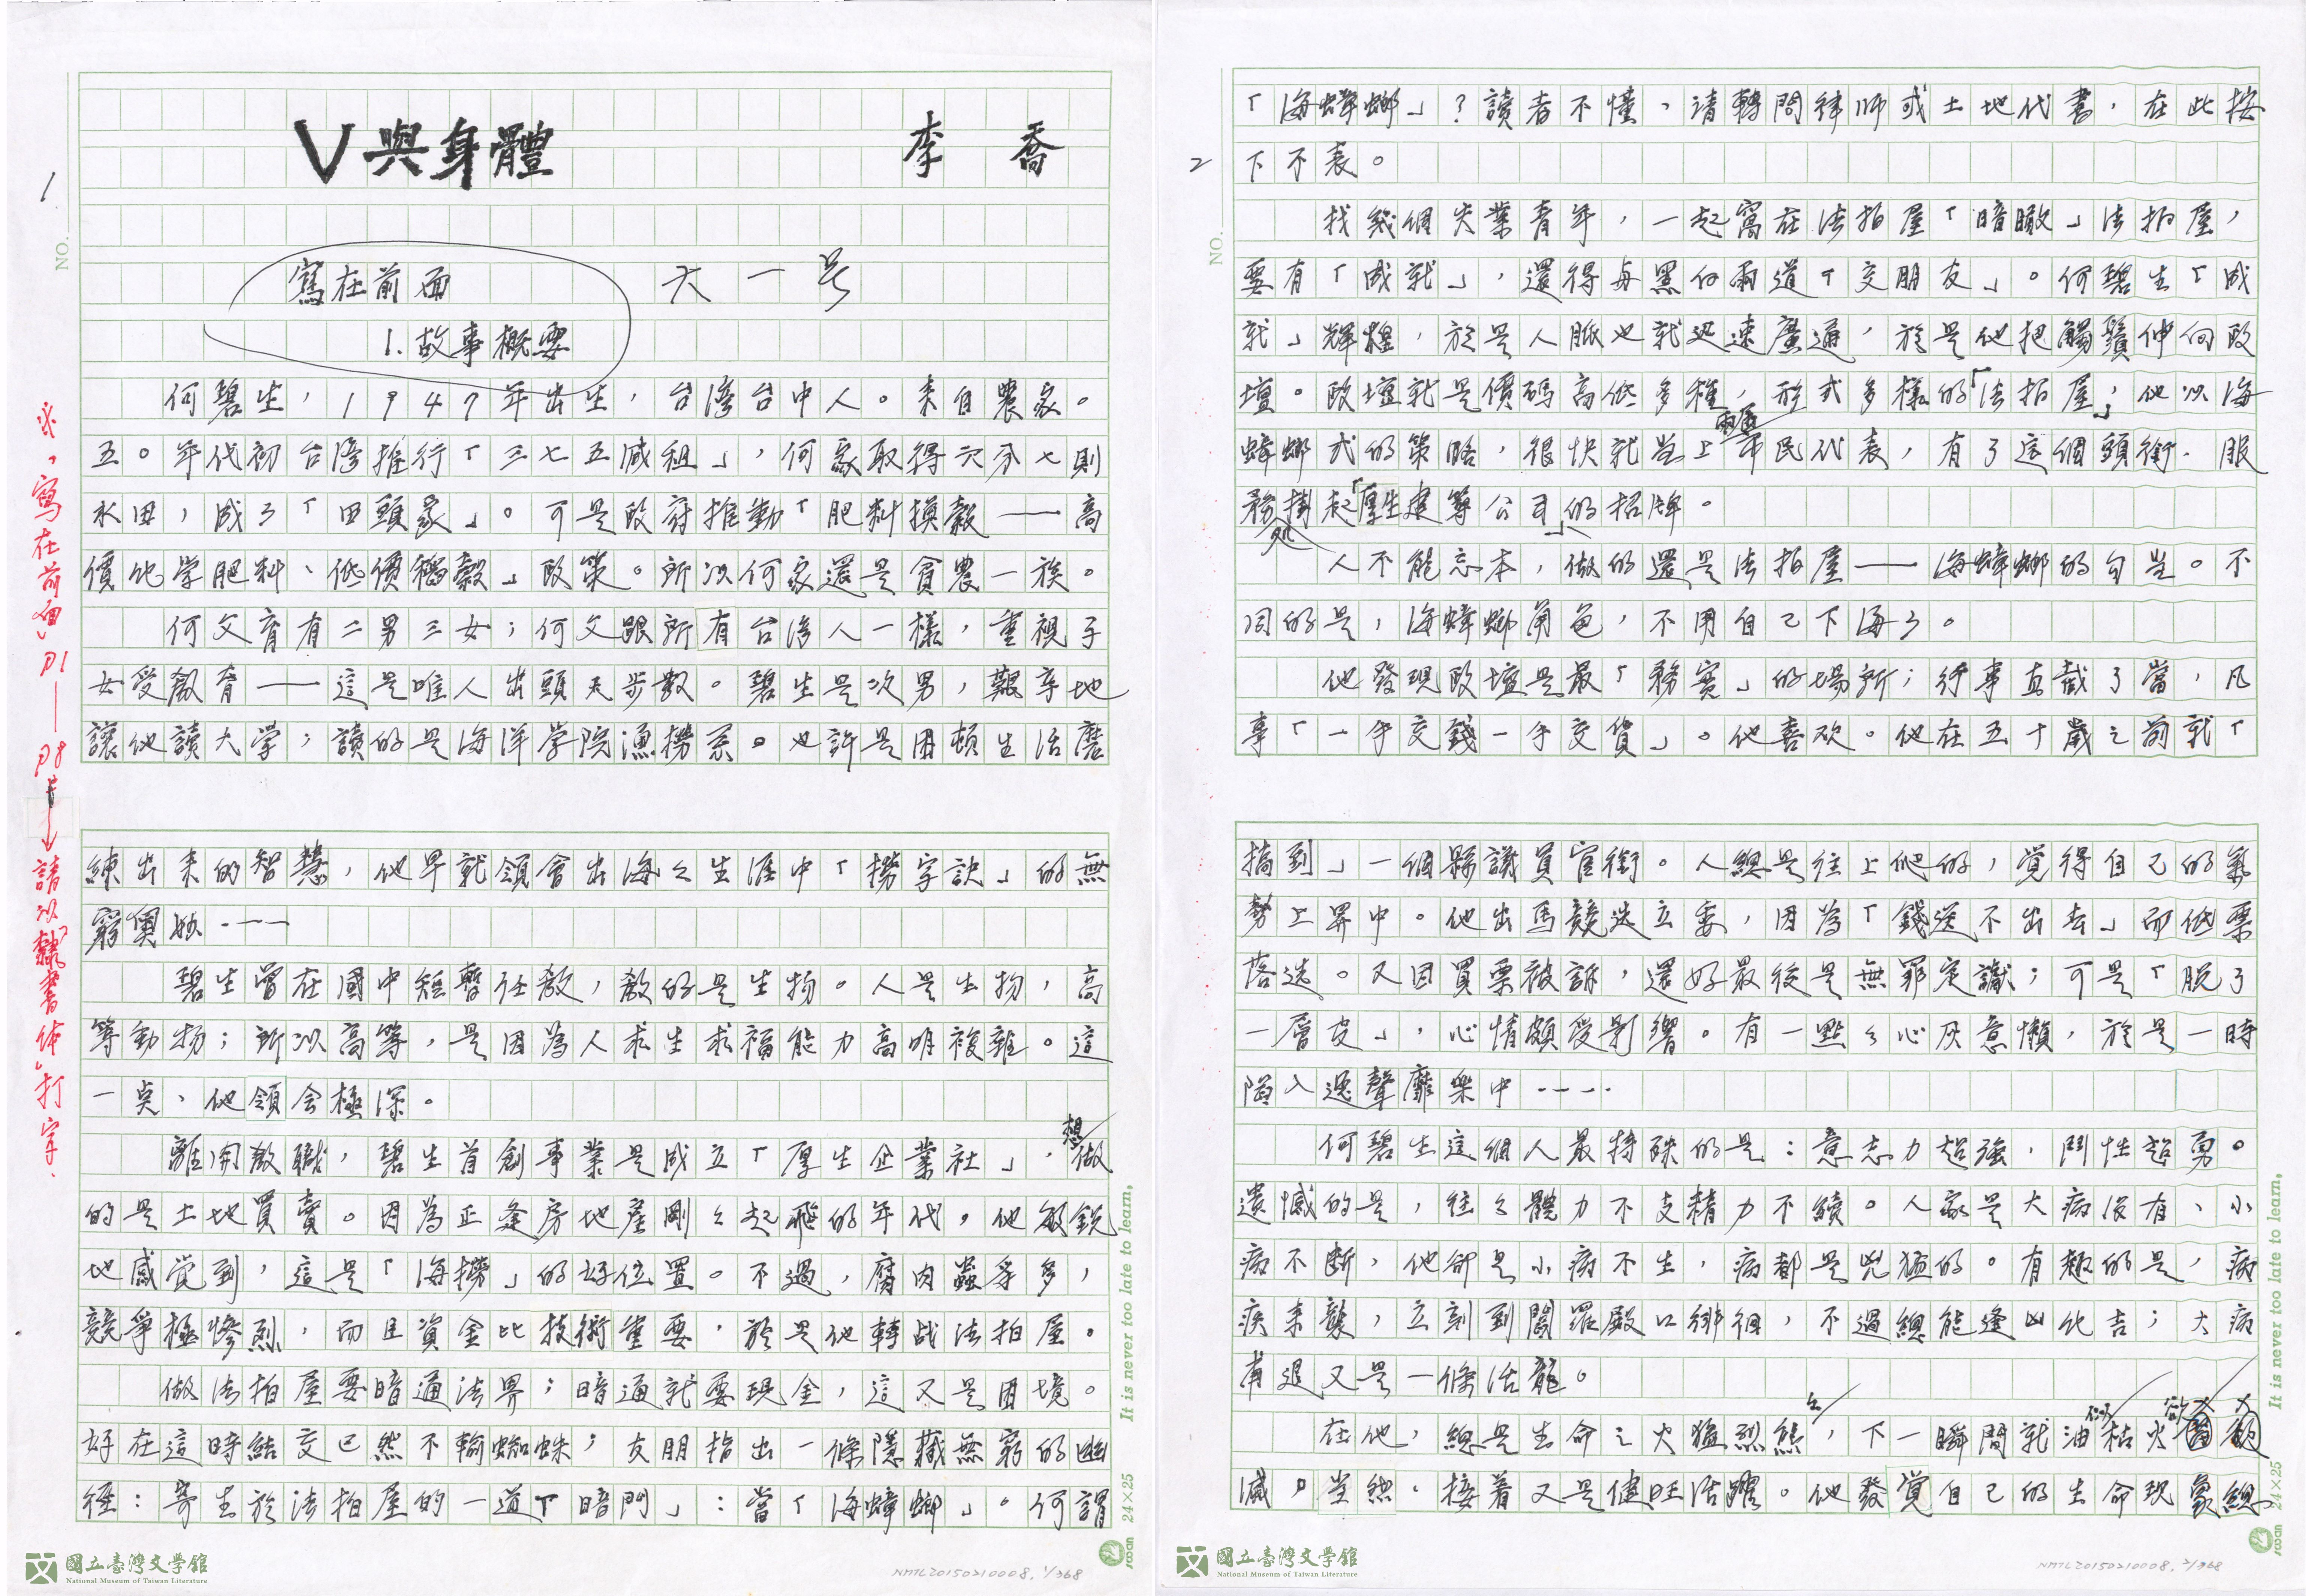 V與身體
李喬
1
NO.
寫在前面
大一號
1.故事概要
何碧生，1947年出生，台湾台中人。来自農家。
五○年代初台湾推行「三七五減租」，何家取得六分七則
水田，成了「田頭家」。可是政府推動「肥料換穀——高
價化学肥料、低價稻穀」政策。所以何家還是貧農一族。
何父育有二男三女；何父跟所有台湾人一樣，重視子
女受教育——這是唯人出頭天步数。碧生是次男，艱辛地
讓他讀大学；讀的是海洋学院漁撈系。也許是困頓生活磨
練出来的智慧，他早就領會出海々生涯中「撈字訣」的無
窮奧妙……
碧生曾在國中短暫任教，教的是生物。人是生物，高
等動物；所以高等，是因為人求生求福能力高明複雜。這
一点、他領会極深。
離開教職，碧生首創事業是成立「厚生企業社」，想做
的是土地買賣。因為正逢房地產剛々起飛的年代，他敏銳
地感覚到，這是「海撈」的好位置。不過，腐肉蟲多多，
競爭極慘烈，而且資金比技術重要，於是他轉战法拍屋。
做法拍屋要暗通法界；暗通就要現金，這又是困境。
好在這時結交已然不輸蜘蛛；友朋指出一條隱藏無窮的幽
徑：寄生於法拍屋的一道「暗門」：當「海蟑螂」。何謂
※「寫在前面」P1——P8→請以「隸書体」打字、
It is never too late to learn.
24×25
swan
國立臺灣文學館
National Museum of Taiwan Literature
NMTL20150210008, 1/368
2
NO.
「海蟑螂」？讀者不懂，请轉問律师或土地代書，在此按
下不表。
找幾個失業青年，一起窩在法拍屋「暗瞰」法拍屋，
要有「成就」，還得与黑白兩道「交朋友」。何碧生「成
就」輝煌，於是人脈也就迅速廣通，於是他把觸鬚伸向政
壇。政壇就是價码高低多種，形式多樣的「法拍屋」，他以海
蟑螂式的策略，很快就当上兩屆市民代表，有了這個頭銜，服
務処掛起「厚生建筹公司」的招牌。
人不能忘本，做的還是法拍屋——海蟑螂的勾当。不
同的是，海蟑螂角色，不用自己下海了。
他發現政壇是最「務實」的場所；行事直截了當，凡
事「一手交錢一手交貨」。他喜欢。他在五十歲之前就「
撈到」一個縣議員官銜。人總是往上爬的，覚得自己的氣
勢上昇中。他出馬競选立委，因為「錢送不出去」而低票
落选。又因買票被訴，還好最後是無罪定讞；可是「脫了
一層皮」，心情頗受影響。有一點々心灰意懶，於是一時
陷入逸聲靡樂中……
何碧生這個人最特殊的是：意志力超強，鬥性超勇。
遺憾的是，往々體力不支精力不續。人家是大病沒有、小
病不断，他卻是小病不生，病都是兇猛的。有趣的是，病
疾来襲，立刻到閻羅殿口徘徊，不過總能逢凶化吉；大病
有退又是一條活龍。
在他，總是生命之火猛烈熊々，下一瞬間就油枯火欲
滅。当然，接着又是健旺活躍。他發覚自己的生命現象總
It is never too late to learn.
24×25
swan
國立臺灣文學館
National Museum of Taiwan Literature
NMTL20150210008, 2/368